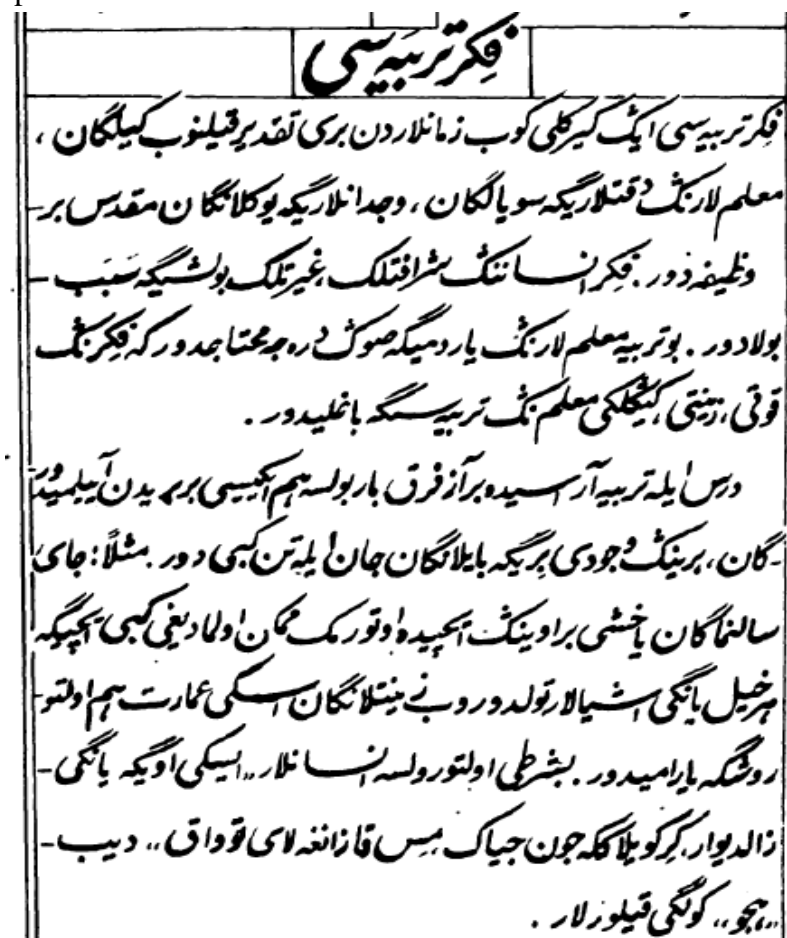 فكر تربيه سی
فكر تربيه سی ايڭ كيركلی كوب زمانلاردن بری تقدير قيلنوب كيلگان ،
معلم لارنڭ دقتلاريگه سويالگان ، وجدانلاريگه يوكلانگان مقدس بر
وظيفه دور . فكر انساننڭ شرافتلك ، غيرتلك بولشيگه سَبَب -
بولادور . بو تربيه معلم لارنڭ ياردميگه صوڭ درجه محتاجدور كه فكرنڭ
قوتی ، زينتی ، كيڭلكی معلم نڭ تربيه سيگه باغليدور .
درس ايله تربيه آراسيده بر آز فرق بار بولسه هم ايكيسی بربريدن آييلميدور
- گان ، برينڭ وجودی بريگه بايلانگان جان ايله تن كبی دور . مثلًا : جای
سالنماگان ياخشی بر اوينڭ ايچيده اوتورمك ممكن اولماديغی كبی ايچيگه
هرخيل يانگی اشيالار تولدوروب زينتلانگان اسكی عمارت هم اولتو -
روشگه ياراميدور . بشرطی اولتورولسه انسانلار ,, ايسكی اويگه يانگی -
زالديوار ، كركويلاككه جون جياك ، مِس قازانغه لای قوواق ,, ديب -
,, هجو ,, كولگی قيلورلار .